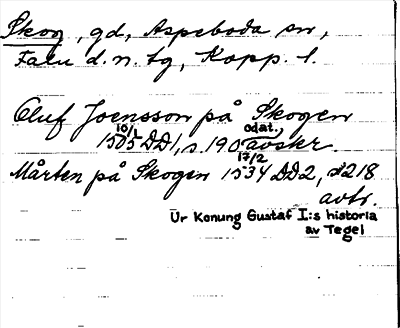 Skog, gd, Aspeboda sn,
Falu d.n. tg, Kopp. l.
Oluf Joensson på Skogen
10/1 odat.
1505 DD1, s. 190 avskr.
17/2
Mårten på Skogen 1534 DD2, s 218
avtr.
Ur Konung Gustaf I:s historia
av Tegel